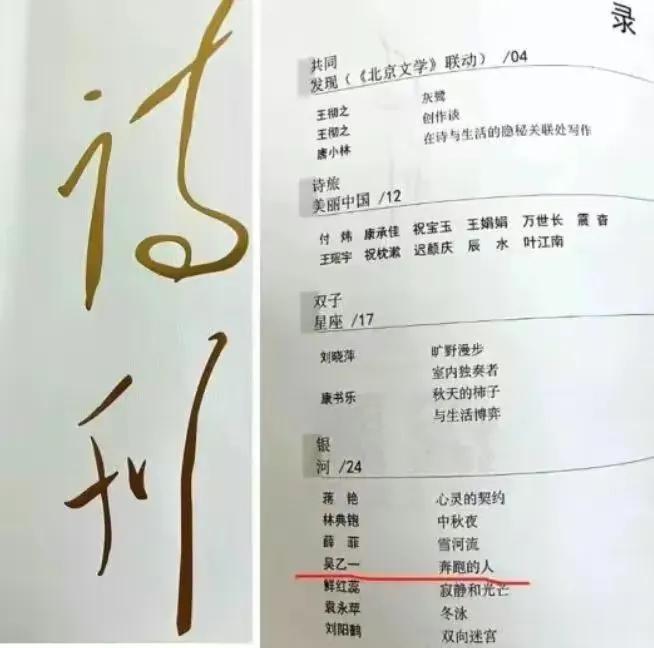 诗刊
录
共同
发现(《北京文学》联动) /04
王彻之 灰鹭
王彻之 创作谈
唐小林 在诗与生活的隐秘关联处写作
诗旅
美丽中国 /12
付炜 康承佳 祝宝玉 王娟娟 万世长 震杳
王瑶宇 祝枕漱 迟颜庆 辰水 叶江南
双子
星座 /17
刘晓萍 旷野漫步
室内独奏者
康书乐 秋天的柿子
与生活博弈
银
河 /24
蒋艳 心灵的契约
林典铇 中秋夜
薛菲 雪河流
吴乙一 奔跑的人
鲜红蕊 寂静和光芒
袁永苹 冬泳
刘阳鹤 双向迷宫